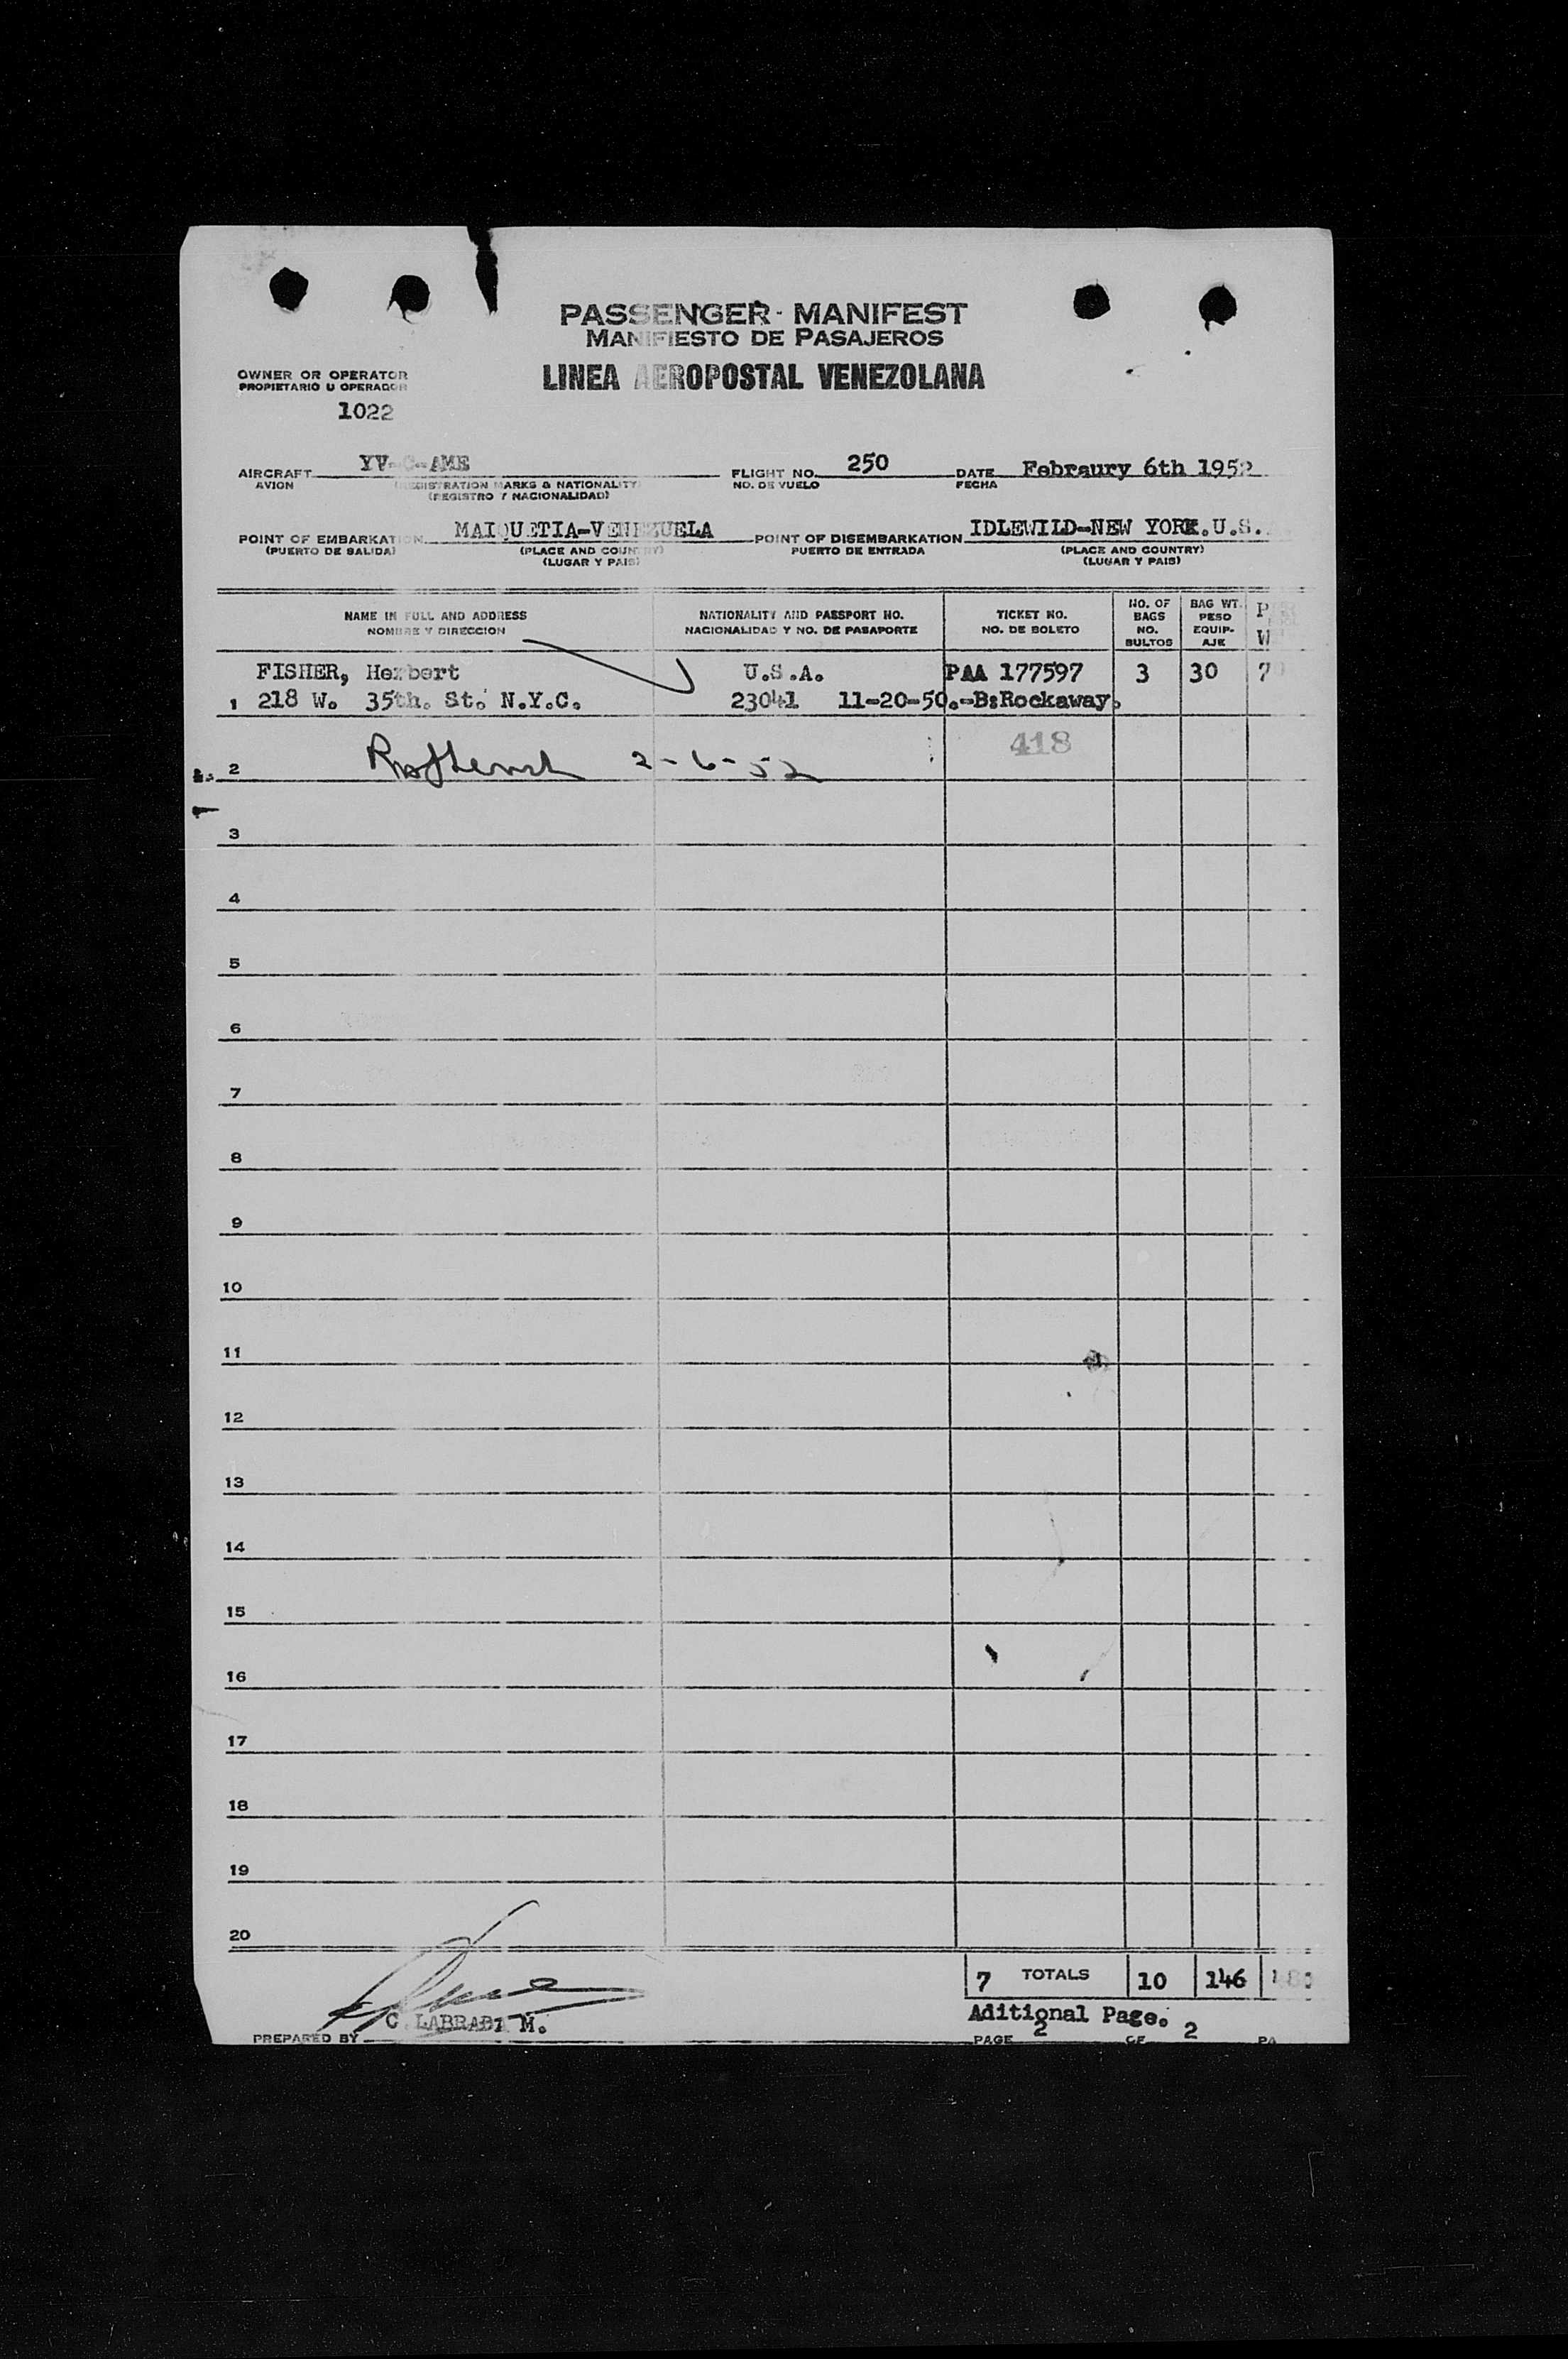 PASSENGER - MANIFEST
MANIFIESTO DE PASAJEROS
LINEA AEROPOSTAL VENEZOLANA
OWNER OR OPERATOR
PROPIETARIO U OPERADOR
1022
AIRCRAFT YV-C-AME FLIGHT NO. 250 DATE Febraury 6th 1952
AVION (REGISTRATION MARKS & NATIONALITY) NO. DE VUELO FECHA
(REGISTRO Y NACIONALIDAD)
POINT OF EMBARKATION MAIQUETIA-VENEZUELA POINT OF DISEMBARKATION IDLEWILD-NEW YORK.U.S.
(PUERTO DE SALIDA) (PLACE AND COUNTRY) PUERTO DE ENTRADA (PLACE AND COUNTRY)
(LUGAR Y PAIS) (LUGAR Y PAIS)
NAME IN FULL AND ADDRESS
NOMBRE Y DIRECCION
NATIONALITY AND PASSPORT NO.
NACIONALIDAD Y NO. DE PASAPORTE
TICKET NO.
NO. DE BOLETO
NO. OF
BAGS
NO.
BULTOS
BAG WT.
PESO
EQUIP-
AJE
FISHER, Herbert U.S.A. PAA 177597 3 30
1 218 W. 35th. St. N.Y.C. 23041 11-20-50.-B:Rockaway.
418
2 2-6-52
3
4
5
6
7
8
9
10
11
12
13
14
15
16
17
18
19
20
7 TOTALS 10 146
Aditional Page.
PREPARED BY C. M.
PAGE 2 OF 2